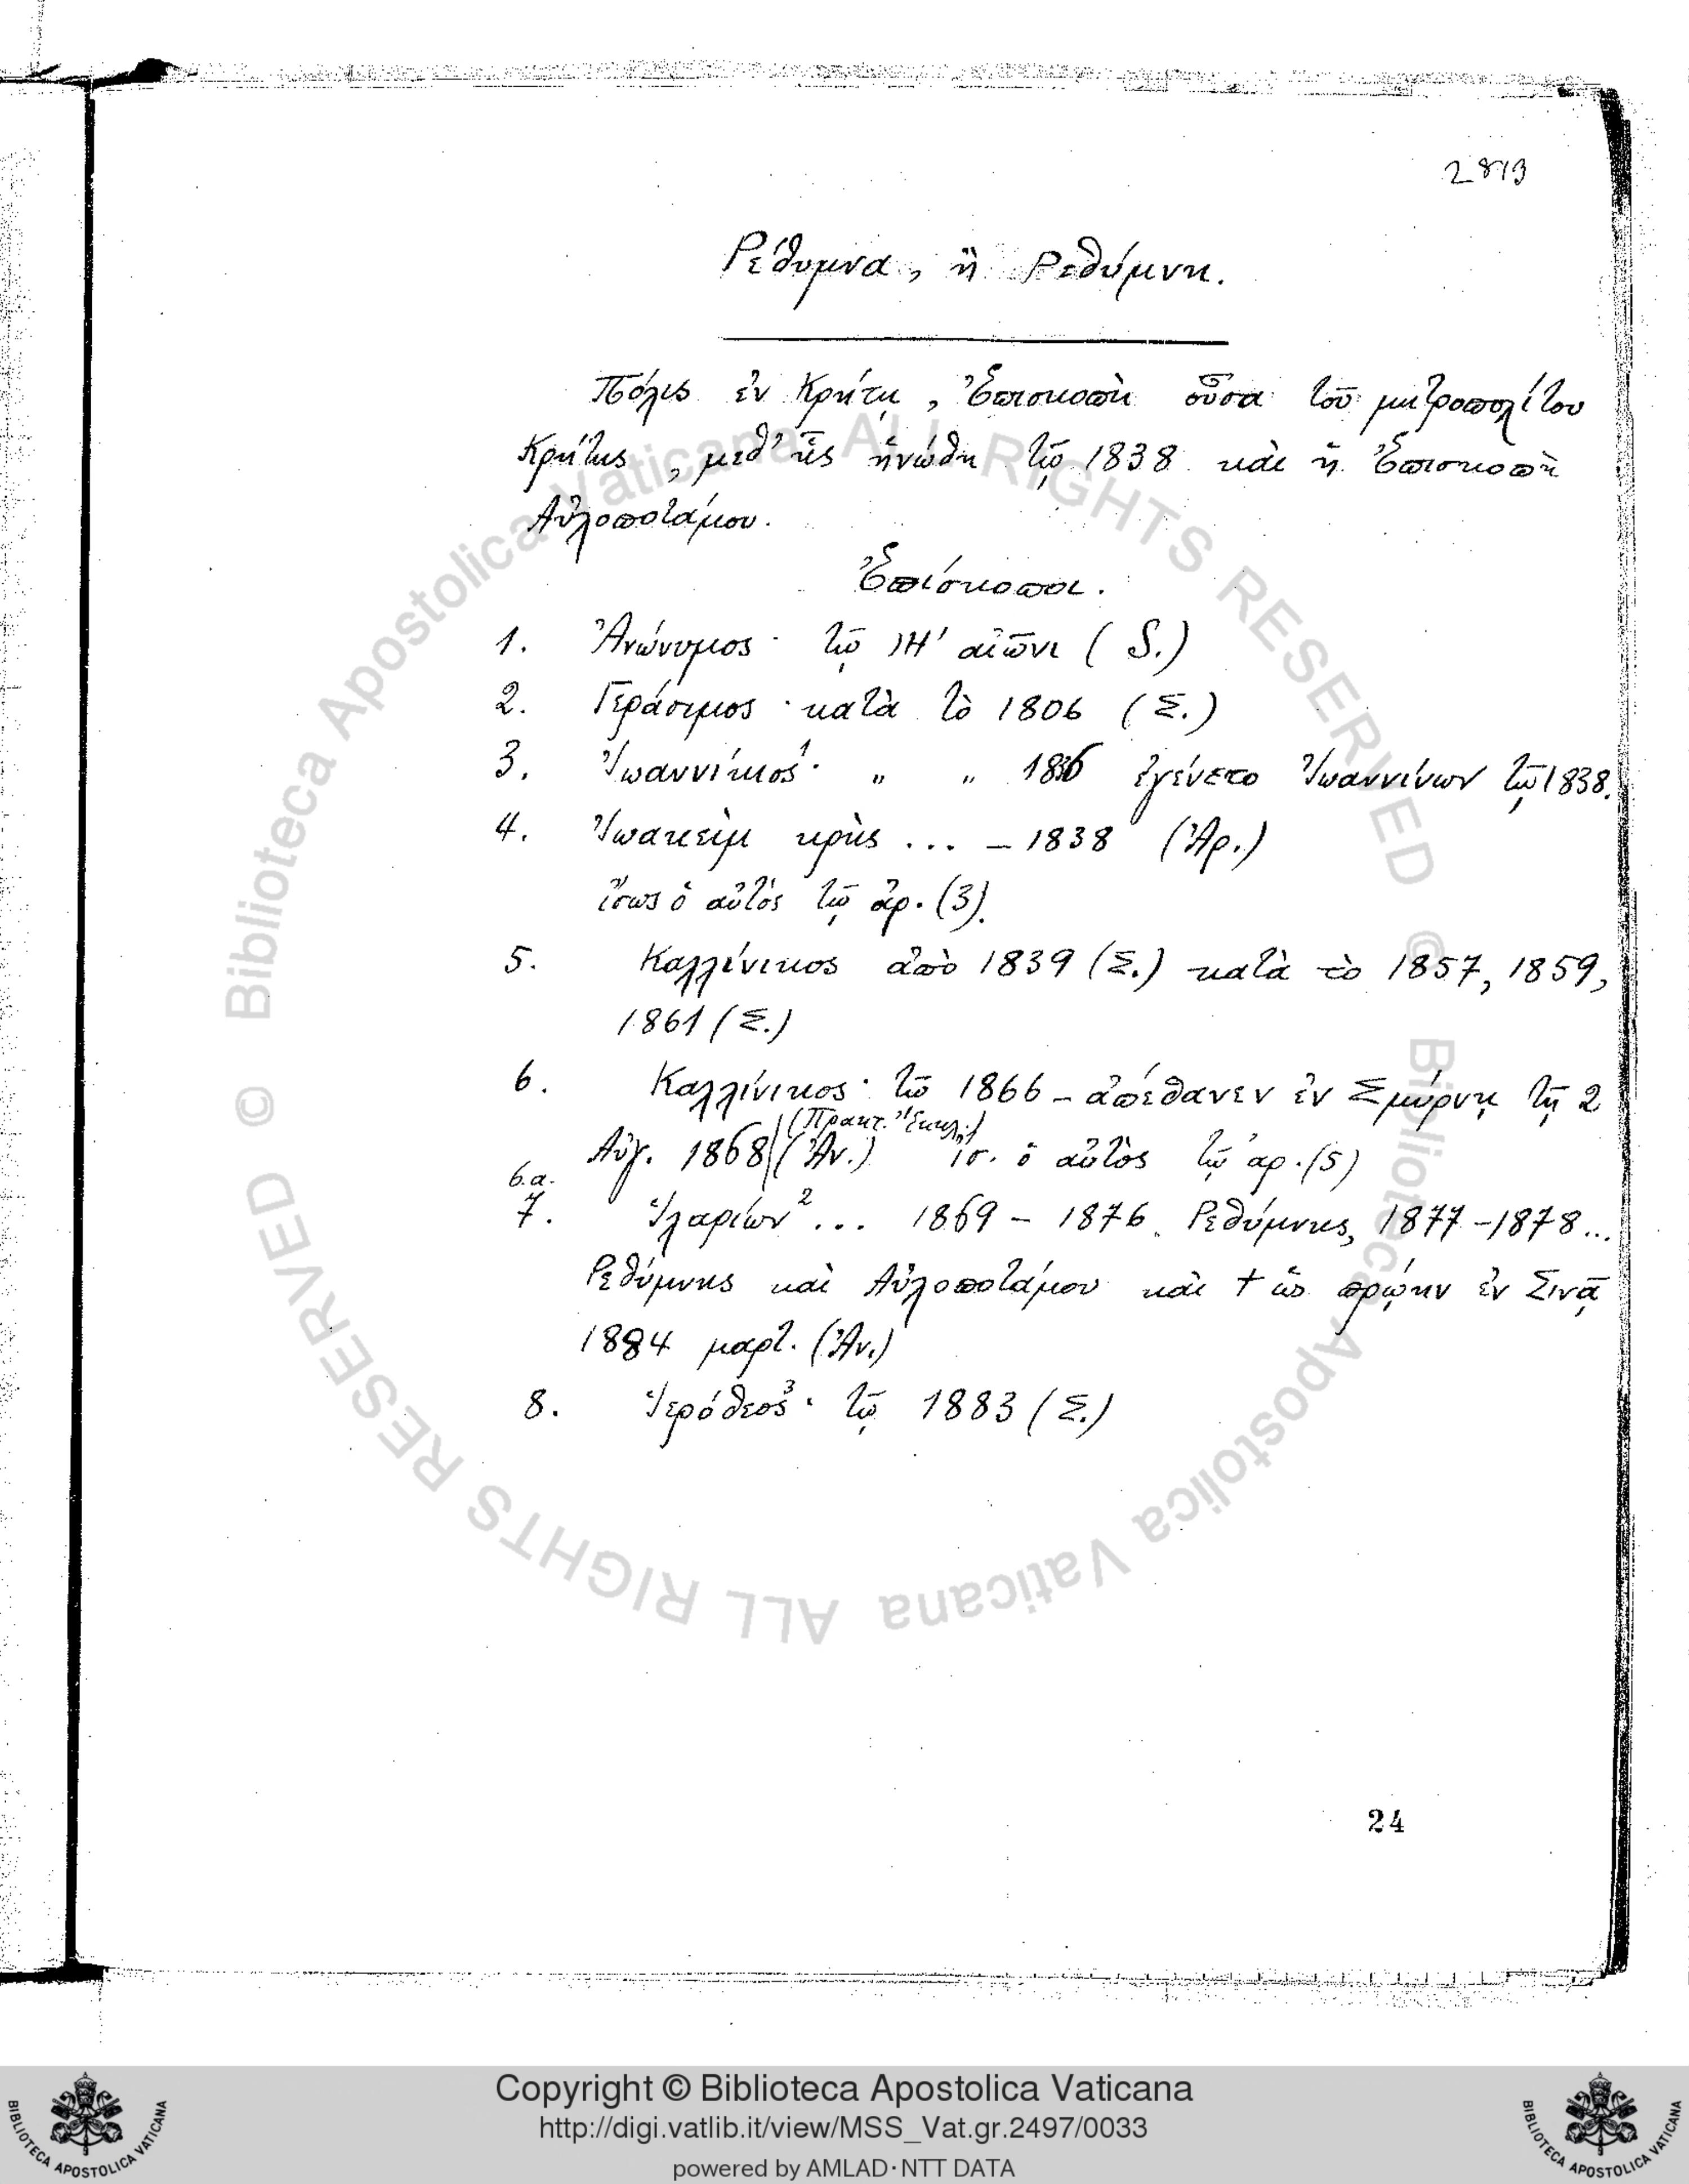 2813
Ρέθυμνα, ἢ Ρεθύμνη.
Πόλις ἐν Κρήτῃ, Ἐπισκοπὴ οὖσα τοῦ μητροπολίτου
Κρήτης, μεθ' ἧς ἡνώθη τῷ 1838 καὶ ἡ Ἐπισκοπὴ
Αὐλοποτάμου.
Ἐπίσκοποι.
1. Ἀνώνυμος· τῷ ΙΗ' αἰῶνι (S.)
2. Γεράσιμος· κατὰ τὸ 1806 (Σ.)
3. Ἰωαννίκιος¹· " " 1836 ἐγένετο Ἰωαννίνων τῷ 1838.
4. Ἰωακεὶμ κρὴς ... – 1838 (Ἀρ.)
ἴσως ὁ αὐτός τῷ ἀρ. (3).
5. Καλλίνικος ἀπὸ 1839 (Σ.) κατὰ τὸ 1857, 1859,
1861 (Σ.)
6. Καλλίνικος· τῷ 1866 – ἀπέθανεν ἐν Σμύρνῃ τῇ 2
(Πρακτ. Ἐκκλ.)
Αὐγ. 1868 (Ἀν.) ἴσ. ὁ αὐτὸς τῷ ἀρ. (5)
6.α.
7. Ἱλαρίων² ... 1869 – 1876. Ρεθύμνης, 1877 – 1878...
Ρεθύμνης καὶ Αὐλοποτάμου καὶ † ὡς πρῴην ἐν Σινᾷ
1884 μαρτ. (Ἀν.)
8. Ἱερόθεος³· τῷ 1883 (Σ.)
24
© Biblioteca Apostolica Vaticana ALL RIGHTS RESERVED
© Biblioteca Apostolica Vaticana ALL RIGHTS RESERVED
Copyright © Biblioteca Apostolica Vaticana
http://digi.vatlib.it/view/MSS_Vat.gr.2497/0033
powered by AMLAD·NTT DATA
BIBLIOTECA APOSTOLICA VATICANA
BIBLIOTECA APOSTOLICA VATICANA